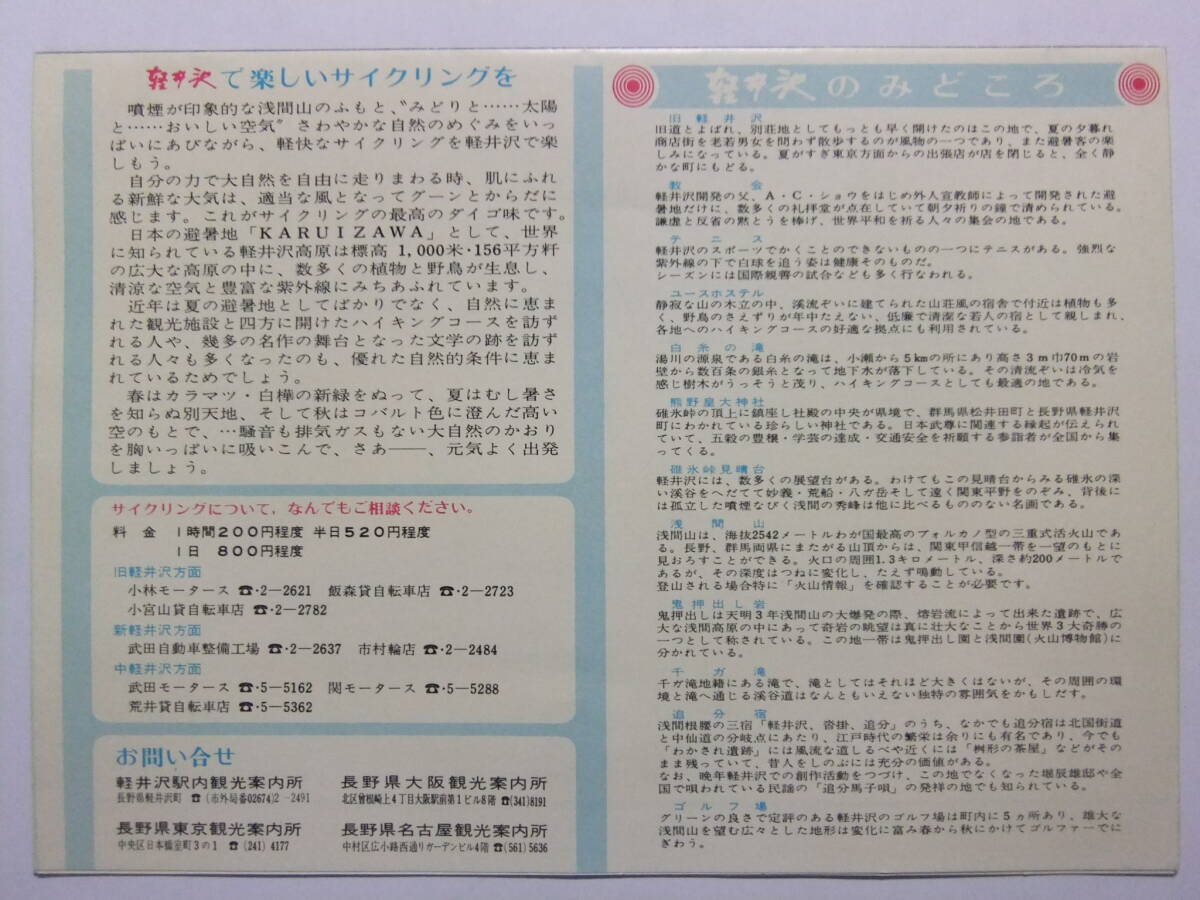 軽井沢で楽しいサイクリングを
噴煙が印象的な浅間山のふもと、〝みどりと……太陽
と……おいしい空気〟さわやかな自然のめぐみをいっ
ぱいにあびながら、軽快なサイクリングを軽井沢で楽
しもう。
自分の力で大自然を自由に走りまわる時、肌にふれ
る新鮮な大気は、適当な風となってグーンとからだに
感じます。これがサイクリングの最高のダイゴ味です。
日本の避暑地「KARUIZAWA」として、世界
に知られている軽井沢高原は標高 1,000米・156平方粁
の広大な高原の中に、数多くの植物と野鳥が生息し、
清涼な空気と豊富な紫外線にみちあふれています。
近年は夏の避暑地としてばかりでなく、自然に恵ま
れた観光施設と四方に開けたハイキングコースを訪ず
れる人や、幾多の名作の舞台となった文学の跡を訪ず
れる人々も多くなったのも、優れた自然的条件に恵ま
れているためでしょう。
春はカラマツ・白樺の新緑をぬって、夏はむし暑さ
を知らぬ別天地、そして秋はコバルト色に澄んだ高い
空のもとで、…騒音も排気ガスもない大自然のかおり
を胸いっぱいに吸いこんで、さあ――、元気よく出発
しましょう。
サイクリングについて、なんでもご相談ください。
料 金 1時間200円程度 半日520円程度
1日 800円程度
旧軽井沢方面
小林モータース ☎・2―2621 飯森貸自転車店 ☎・2―2723
小宮山貸自転車店 ☎・2―2782
新軽井沢方面
武田自動車整備工場 ☎・2―2637 市村輪店 ☎・2―2484
中軽井沢方面
武田モータース ☎・5―5162 関モータース ☎・5―5288
荒井貸自転車店 ☎・5―5362
お問い合せ
軽井沢駅内観光案内所
長野県軽井沢町 ☎ (市外局番02674) 2-2491
長野県大阪観光案内所
北区曾根崎上4丁目大阪駅前第1ビル8階 ☎(341)8191
長野県東京観光案内所
中央区日本橋室町3の1 ☎ (241) 4177
長野県名古屋観光案内所
中村区広小路西通りガーデンビル4階 ☎(561)5636
軽井沢のみどころ
旧軽井沢
旧道とよばれ、別荘地としてもっとも早く開けたのはこの地で、夏の夕暮れ
商店街を老若男女を問わず散歩するのが風物の一つであり、また避暑客の楽
しみになっている。夏がすぎ東京方面からの出張店が店を閉じると、全く静
かな町にもどる。
教会
軽井沢開発の父、A・C・ショウをはじめ外人宣教師によって開発された避
暑地だけに、数多くの礼拝堂が点在していて朝夕祈りの鐘で清められている。
謙虚と反省の黙とうを捧げ、世界平和を祈る人々の集会の地である。
テニス
軽井沢のスポーツでかくことのできないものの一つにテニスがある。強烈な
紫外線の下で白球を追う姿は健康そのものだ。
シーズンには国際親善の試合なども多く行なわれる。
ユースホステル
静寂な山の木立の中、渓流ぞいに建てられた山荘風の宿舎で付近は植物も多
く、野鳥のさえずりが年中たえない、低廉で清潔な若人の宿として親しまれ、
各地へのハイキングコースの好適な拠点にも利用されている。
白糸の滝
湯川の源泉である白糸の滝は、小瀬から5kmの所にあり高さ3m巾70mの岩
壁から数百条の銀糸となって地下水が落下している。その清流ぞいは冷気を
感じ樹木がうっそうと茂り、ハイキングコースとしても最適の地である。
熊野皇大神社
碓氷峠の頂上に鎮座し社殿の中央が県境で、群馬県松井田町と長野県軽井沢
町にわかれている珍らしい神社である。日本武尊に関連する縁起が伝えられ
ていて、五穀の豊穣・学芸の達成・交通安全を祈願する参詣者が全国から集
ってくる。
碓氷峠見晴台
軽井沢には、数多くの展望台がある。わけてもこの見晴台からみる碓氷の深
い渓谷をへだてて妙義・荒船・八ガ岳そして遠く関東平野をのぞみ、背後に
は孤立した噴煙なびく浅間の秀峰は他に比べるもののない名画である。
浅間山
浅間山は、海抜2542メートルわが国最高のブォルカノ型の三重式活火山であ
る。長野、群馬両県にまたがる山頂からは、関東甲信越一帯を一望のもとに
見おろすことができる。火口の周囲1.3キロメートル、深さ約200メートルで
あるが、その深度はつねに変化し、たえず鳴動している。
登山される場合特に「火山情報」を確認することが必要です。
鬼押出し岩
鬼押出しは天明3年浅間山の大爆発の際、熔岩流によって出来た遺跡で、広
大な浅間高原の中にあって奇岩の眺望は真に壮大なことから世界3大奇勝の
一つとして称されている。この地一帯は鬼押出し園と浅間園(火山博物館)に
分かれている。
千ガ滝
千ガ滝地籍にある滝で、滝としてはそれほど大きくはないが、その周囲の環
境と滝へ通じる渓谷道はなんともいえない独特の雰囲気をかもしだす。
追分宿
浅間根腰の三宿「軽井沢、沓掛、追分」のうち、なかでも追分宿は北国街道
と中仙道の分岐点にあたり、江戸時代の繁栄は余りにも有名であり、今でも
「わかされ遺跡」には風流な道しるべや近くには「桝形の茶屋」などがその
まま残っていて、昔人をしのぶには充分の価値がある。
なお、晩年軽井沢での創作活動をつづけ、この地でなくなった堀辰雄邸や全
国で唄われている民謡の「追分馬子唄」の発祥の地でも知られている。
ゴルフ場
グリーンの良さで定評のある軽井沢のゴルフ場は町内に5ヵ所あり、雄大な
浅間山を望む広々とした地形は変化に富み春から秋にかけてゴルファーでに
ぎわう。